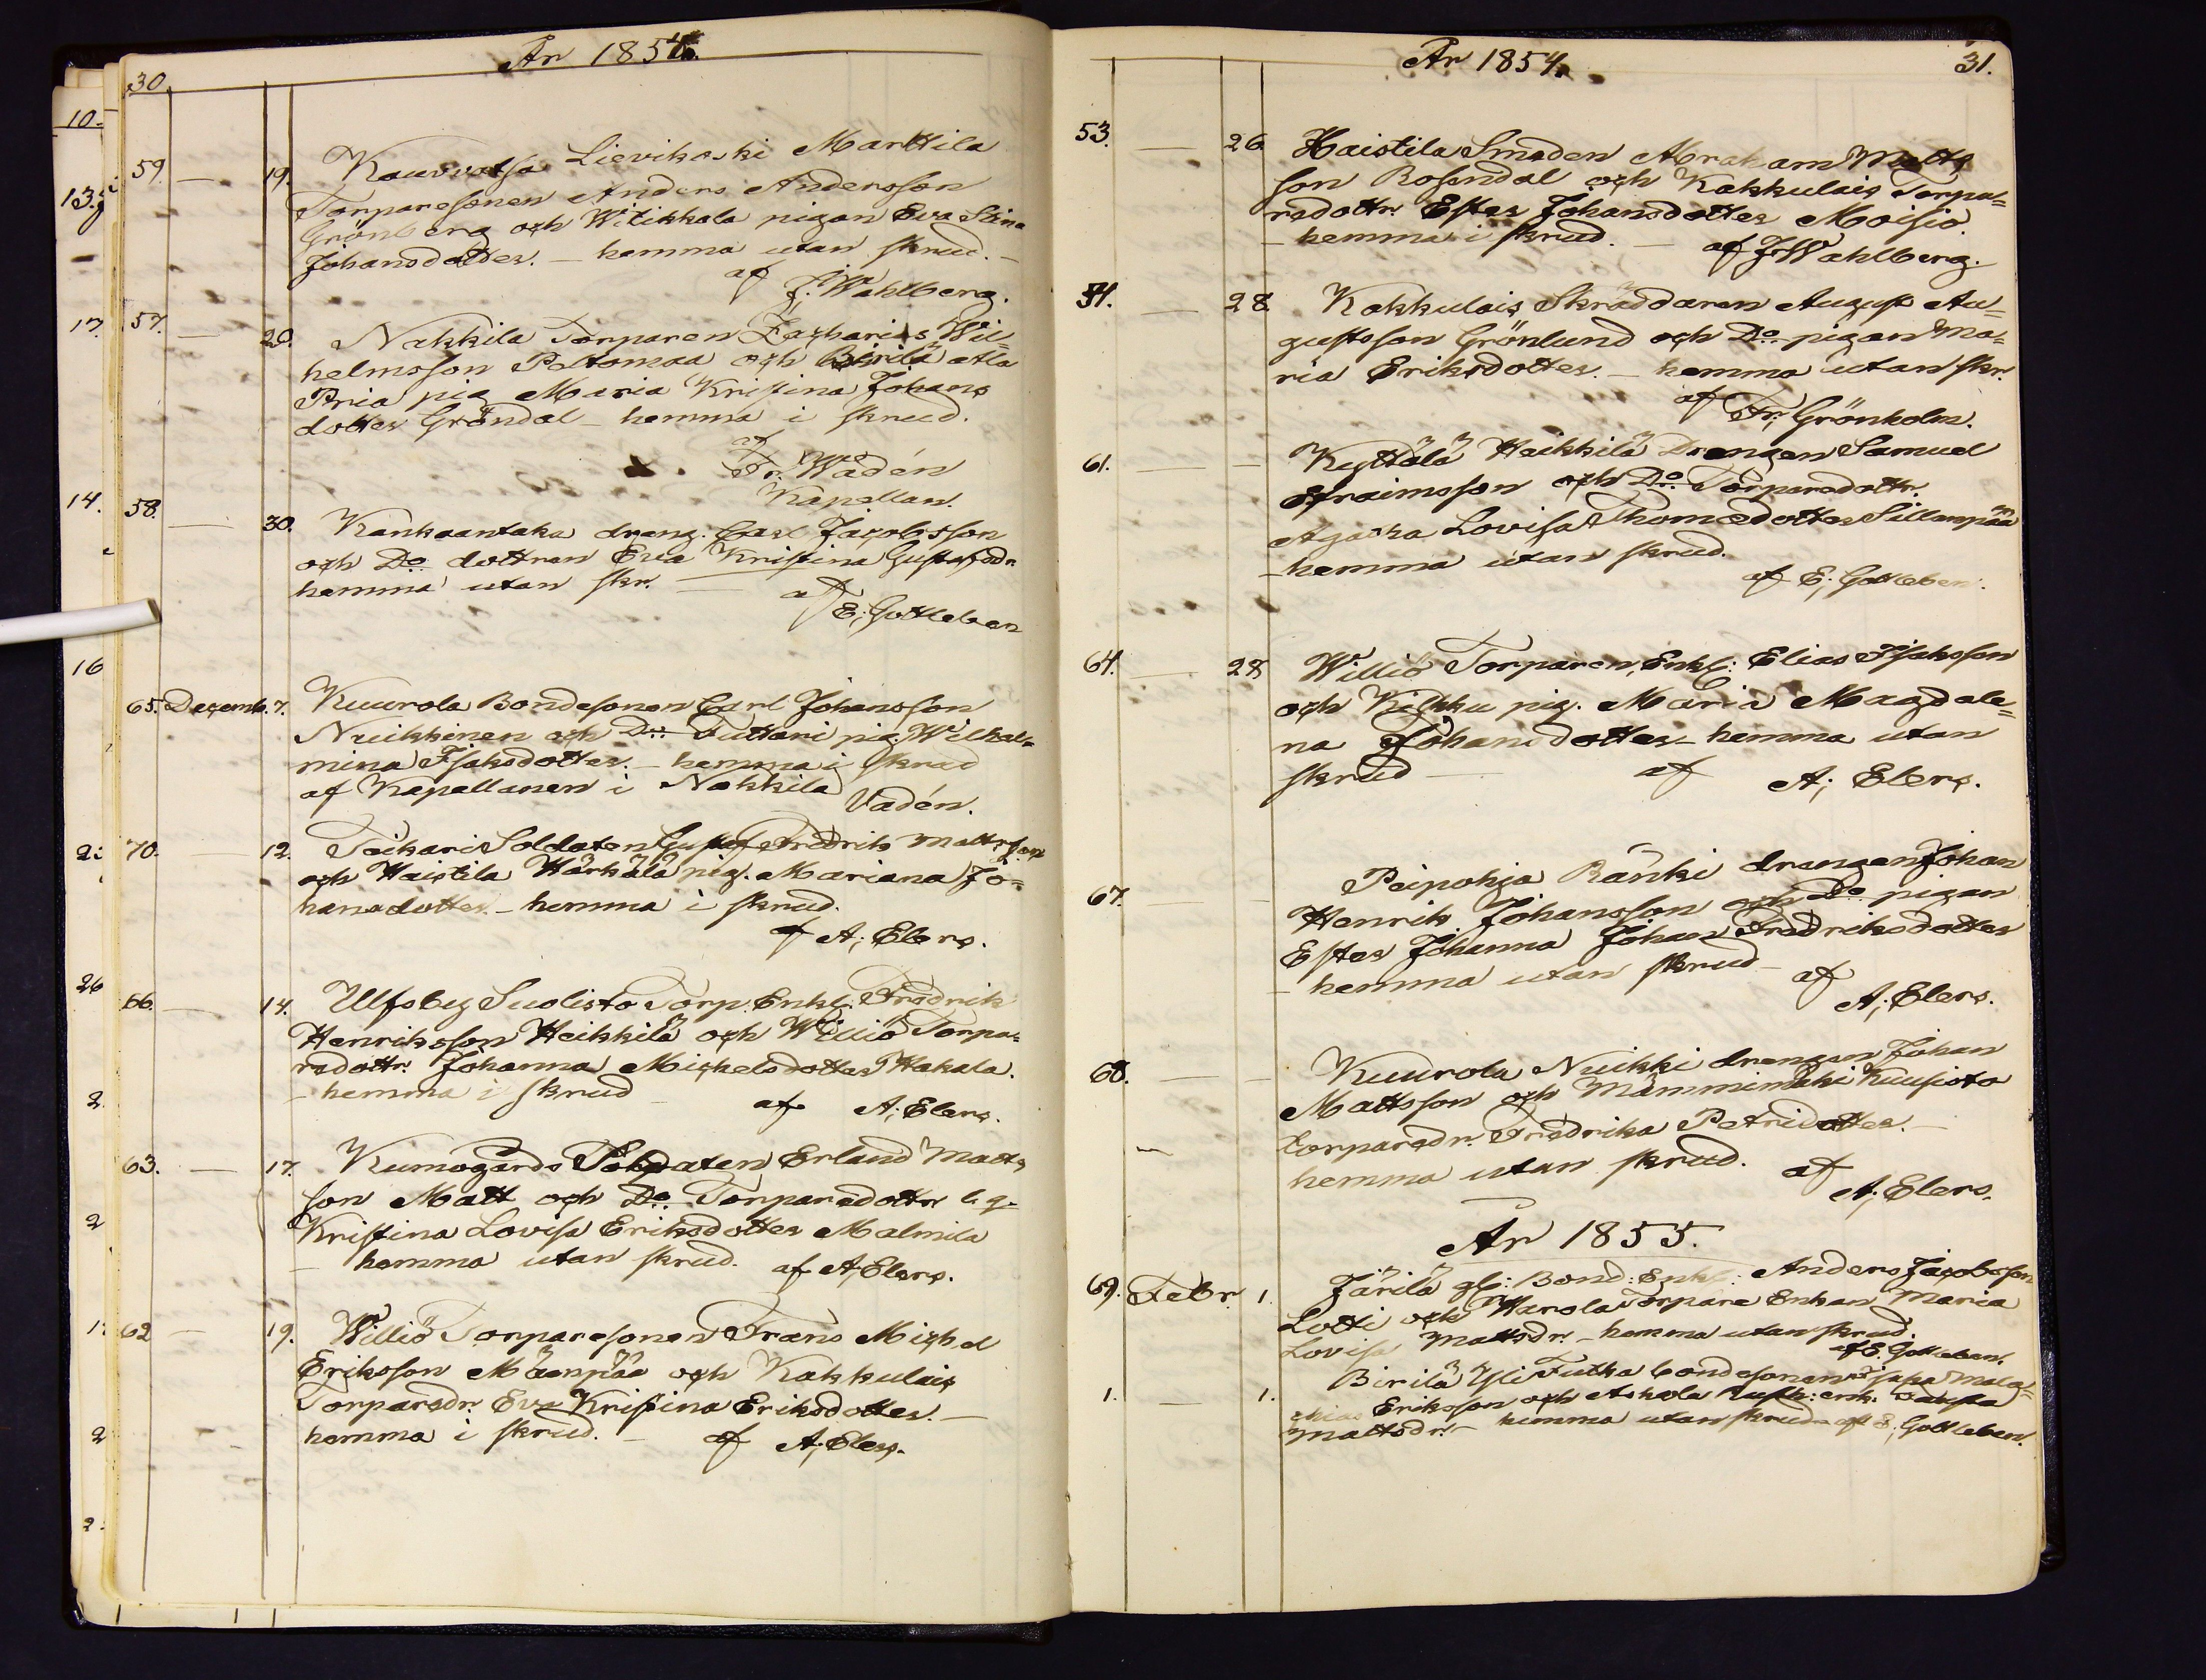 År 1854.
30.
59. — 19. Kauvvatsa Lievikoski Marttila
Torparesonen Anders Andersson
Grönberg och Witikkala pigan Eva Stina
Johansdotter. — hemma utan skrud. —
af J. Wahlberg.
57. — 20. Nakkila Torparen Zacharias Wil=
helmsson Peltomaa och Birilä
Pria pig Maria Kristina Johans
dotter Gröndal — hemma i skrud.
af
Fr. Wadén
Kapellan.
58. — 30. Kankaantaka dräng. Carl Jacobsson
och Do dottren Eva Kristina Gustafsdr.
hemma utan skr. — af
E; Gottleben
65. Decemb. 7. Kuurola Bondesonen Carl Johansson
Nuikkinen och Do Tuttari pig. Wilhel=
mina Isaksdotter. — hemma i skrud
af Kapellanen i Nakkila
Vadén.
70. — 12. Teikari Soldaten Gustaf Fredrik Mattsson
och Haistila Härkälä pig. Mariana Jo=
hansdotter. — hemma i skrud.
af A; Elers.
66. — 14. Ulfsby Suolisto Torp. Enkl: Fredrik
Henriksson Heikkilä och Williö Torpa=
redottr. Johanna Michelsdotter Hakala.
— hemma i skrud — af A; Elers.
63. — 17. Kumogårds Soldaten Erland Matts
son Matt och Do Torparedottr.
Kristina Lovisa Eriksdotter Malmila
— hemma utan skrud. af A; Elers.
62 — 19. Williö Torparesonen Frans Michel
Eriksson Mäenpää och Kakkulais
Torparedr. Eva Kristina Eriksdotter. —
hemma i skrud. — af A; Elers.
År 1854.
31.
53. — 26. Haistila Smeden Abraham Matts
son Rosendal och Kakkulais Torpa=
redottr. Ester Johansdotter Moisio.
— hemma i skrud. — af J. Wahlberg.
54. — 28. Kakkulais Skräddaren August Au=
gustsson Grönlund och Do pigan Ma=
ria Eriksdotter. — hemma utan skr.
af
Fr; Grönholm.
61. — — Kyttälä Heikkilä Drengen Samuel
Efraimsson och Do Torparedottr.
Agatha Lovisa Thomasdotter Sillanpää
— hemma utan skrud.
af E; Gottleben.
64. — 28. Williö Torparen, Enkl: Elias Isaksson
och Kilkku pig. Maria Magdale=
na Johansdotter — hemma utan
skrud — af A; Elers.
67. — — Peipohja Ränki drengen Johan
Henrik Johansson och Do pigan
Ester Johanna Johan Fredriksdotter
— hemma utan skrud — af
A; Elers.
68. — — Kuurola Nuikki drengen Johan
Mattsson och Mämmimäki Kuusisto
torparedr. Fredrika Petridotter. —
hemma utan skrud. af
A; Elers.
År 1855.
69. Febr. 1. Järilä gl: Bond: Enkl: Anders Jacobsson
Lotti och Harola Torpare Enkan Maria
Lovisa Mattsdr. — hemma utan skrud.
af E. Gottleben.
1. — 1. Birilä Yli Tutka bondesonen
Eriksson och Askola
Mattsdr. — hemma utan skrud af E; Gottleben.